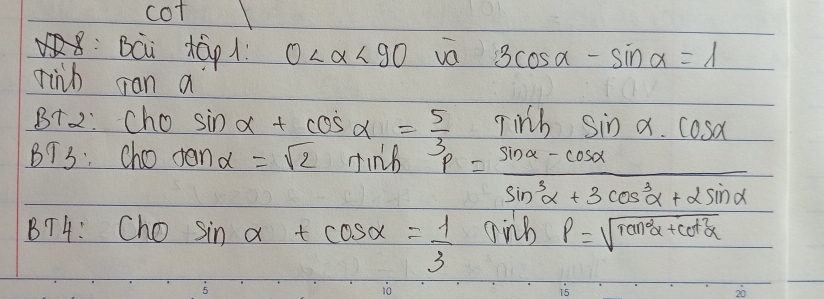 cot
VD8: Bài tập 1: 0 < α < 90 và 3cosα - sinα = 1
Tính Tan α
BT2: Cho sin α + cos α = 5/3 Tính sin α. cosα
BT3: Cho tanα = √2 Tính P = (sinα - cosα)/(sin³α + 3cos³α + 2sinα)
BT4: Cho sin α + cosα = 1/3 Tính P = √(Tan²α + cot²α)
5 10 15 20